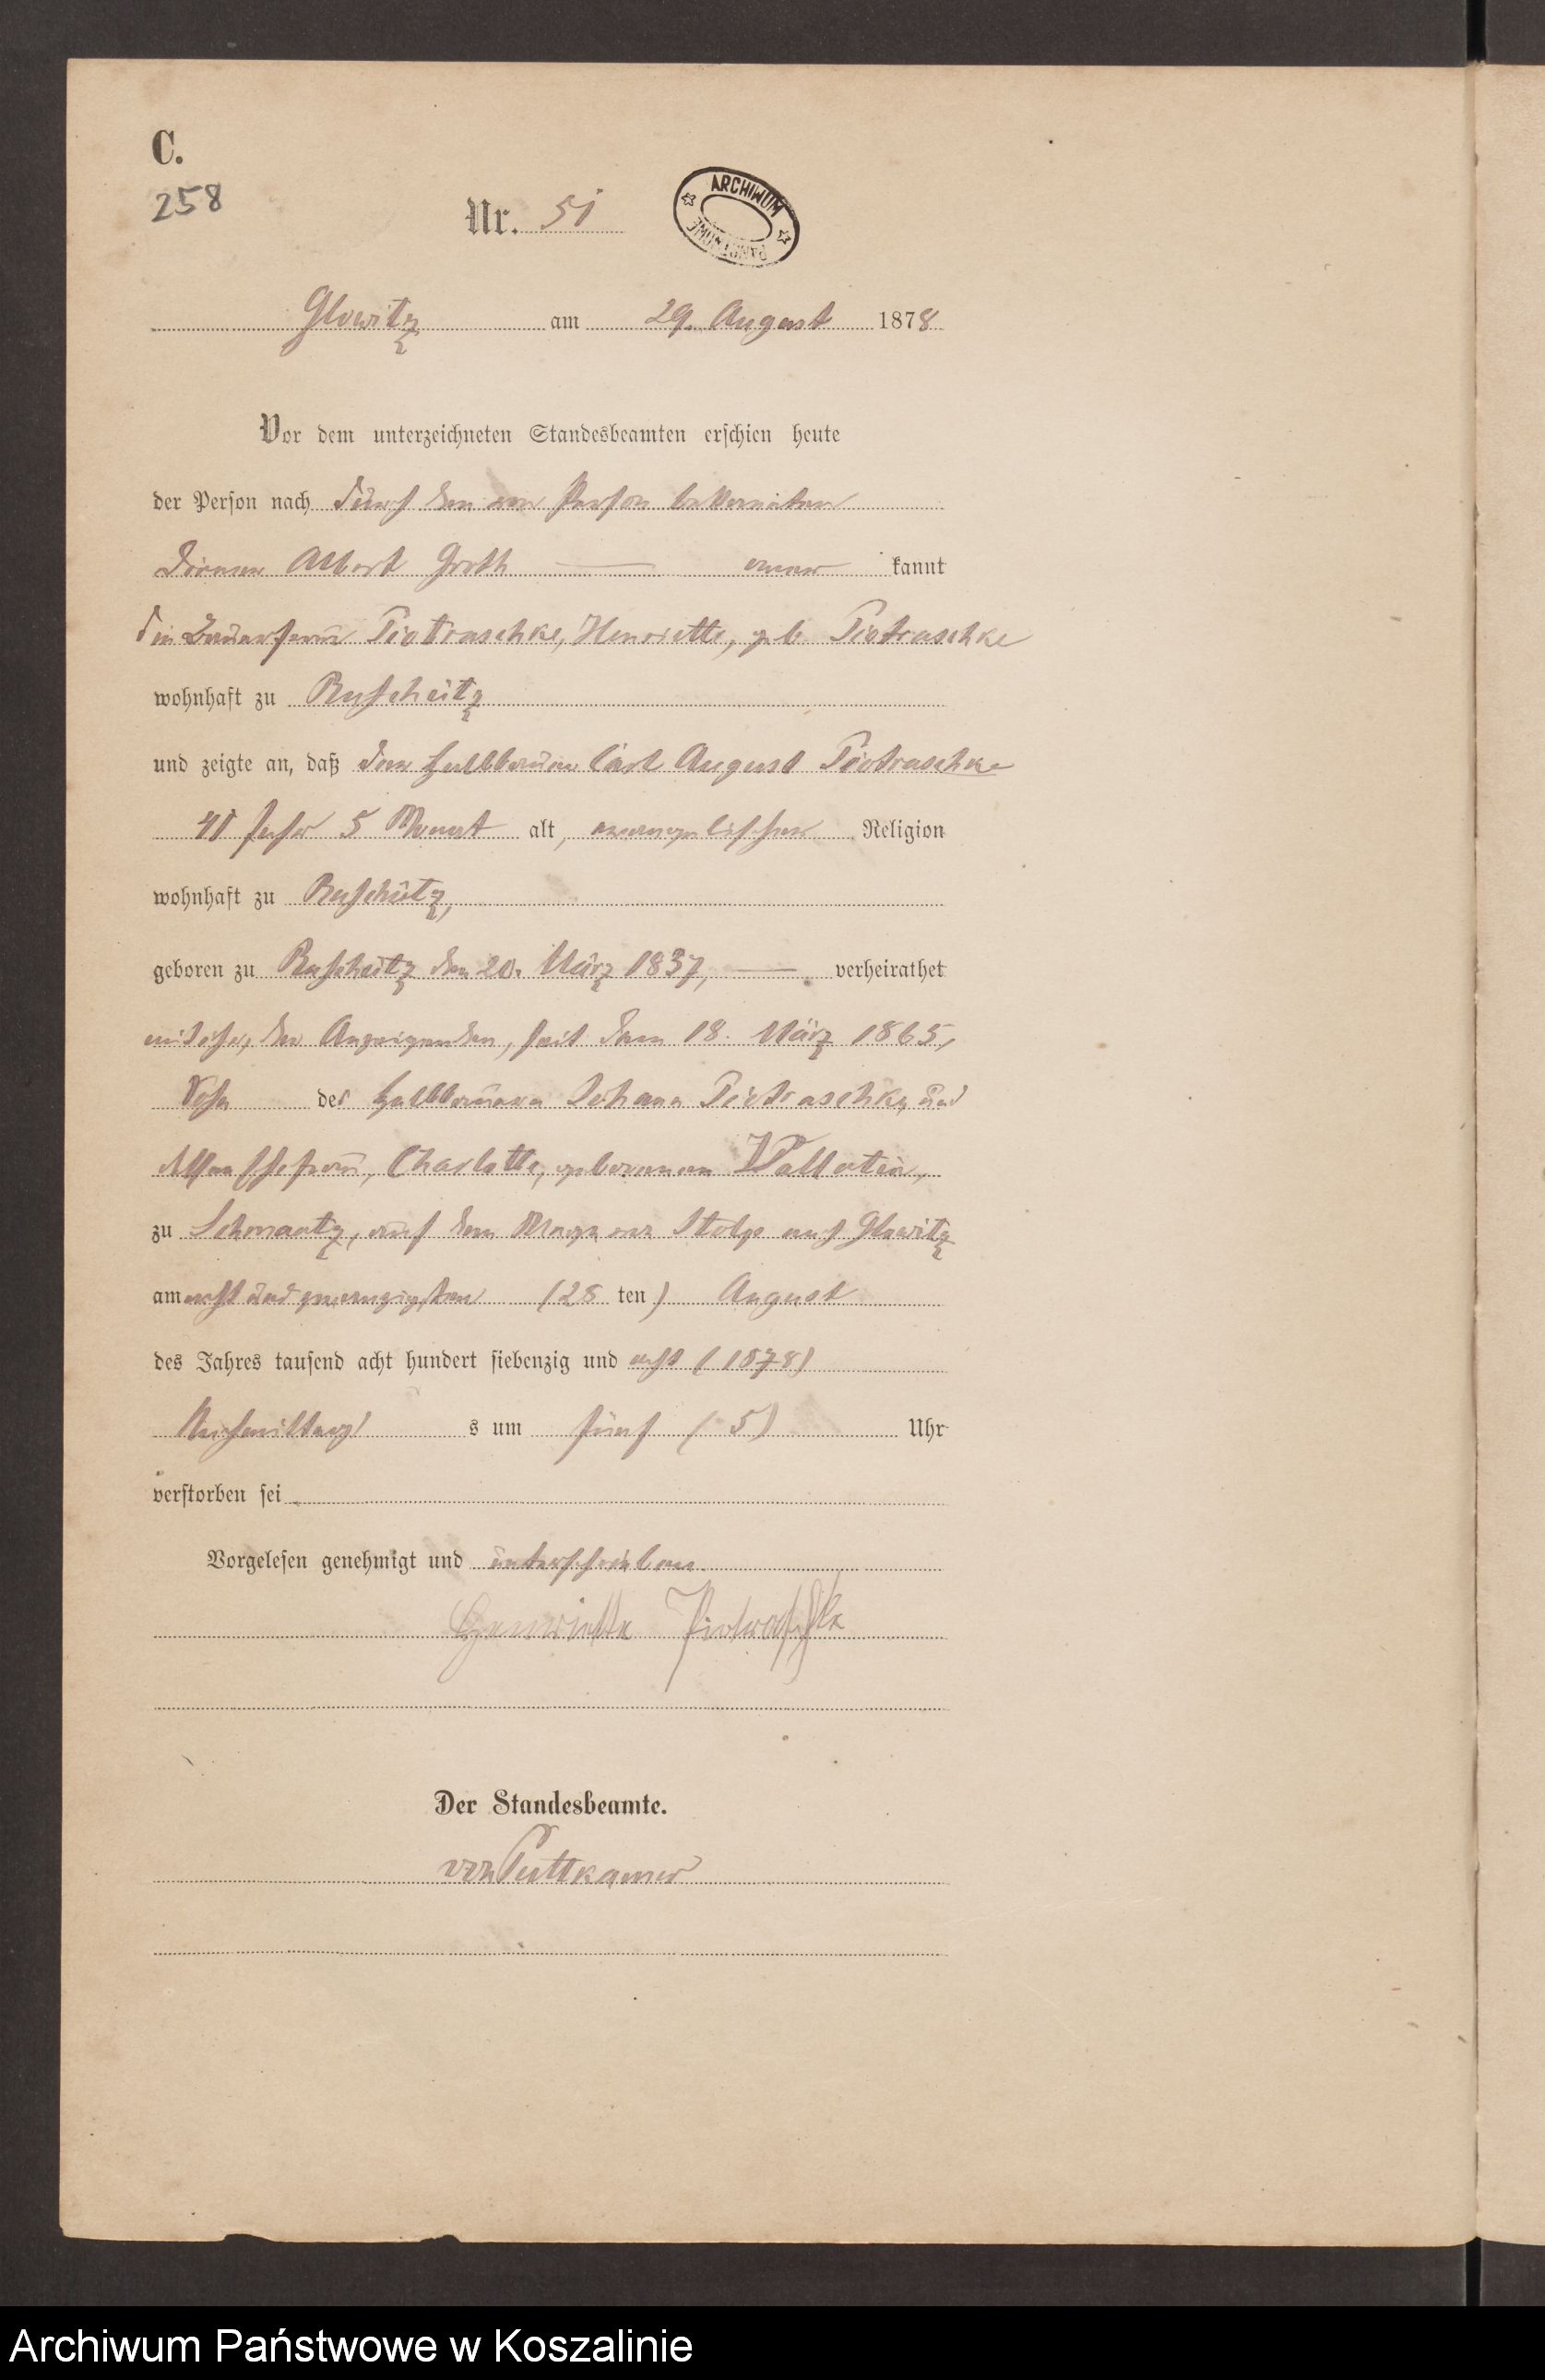 C.
258
Nr. 51
ARCHIWUM
PAŃSTWOWE
Glowitz am 29. August 1878
Vor dem unterzeichneten Standesbeamten erschien heute
der Person nach durch den von Person bekannten
Albert Groth — aner kannt
die Bauerfrau Piotraschke, Henriette, geb. Piotraschke
wohnhaft zu Ruschütz
und zeigte an, daß der Halbbauer Carl August Piotraschke
41 Jahr 5 Monat alt, evangelischer Religion
wohnhaft zu Ruschütz,
geboren zu Ruschütz den 20. März 1837, — verheirathet
mit ihr, der Anzeigenden, seit dem 18. März 1865,
Sohn des Halbbauern Johann Piotraschke und
dessen Ehefrau, Charlotte, geborenen
zu Schmaatz, auf dem Wege von Stolp nach Glowitz
am acht und zwanzigsten (28 ten) August
des Jahres tausend acht hundert siebenzig und acht (1878)
Nachmittag s um fünf (5) Uhr
verstorben sei
Vorgelesen genehmigt und unterschrieben
Henriette Piotraschke
Der Standesbeamte.
von Puttkamer
Archiwum Państwowe w Koszalinie